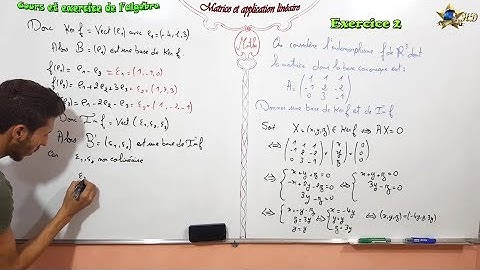 Cours et exercice de l'algèbre
Matrice et application linéaire
Exercice 2
Math
Donc Ker f = Vect (e₁) avec e₁ = (-4,1,3)
Alors B = (e₁) est une base de Ker f
= e₁ - e₃ = ε₁ = (1,-1,0)
= e₁ + 2e₂ + 3e₃ = ε₂ = (1,2,3)
= e₁ - 2e₂ - e₃ = ε₃ = (1,-2,-1)
Donc Im f = Vect (ε₁, ε₂)
Alors B' = (ε₁, ε₂) est une base de Im f
Car ε₁, ε₂ non colinéaire
On considère l'endomorphisme f de R³ dont
la matrice dans la base canonique est :
A = ( 1 1 1
-1 2 -2
0 3 -1 )
Donner une base de Ker f et de Im f
Soit X = (x,y,z) ∈ Ker f ⇔ AX = 0
⇔ ( 1 1 1
-1 2 -2
0 3 -1 ) ( x
y
z ) = ( 0
0
0 )
⇔ { x+y+z=0
-x+2y-2z=0
3y-z=0
⇔ { x+y+z=0
3y-z=0
⇔ { x=-y-z
z=3y
y=y
⇔ { x=-4y
y=y
z=3y
⇔ (x,y,z)=(-4y,y,3y)